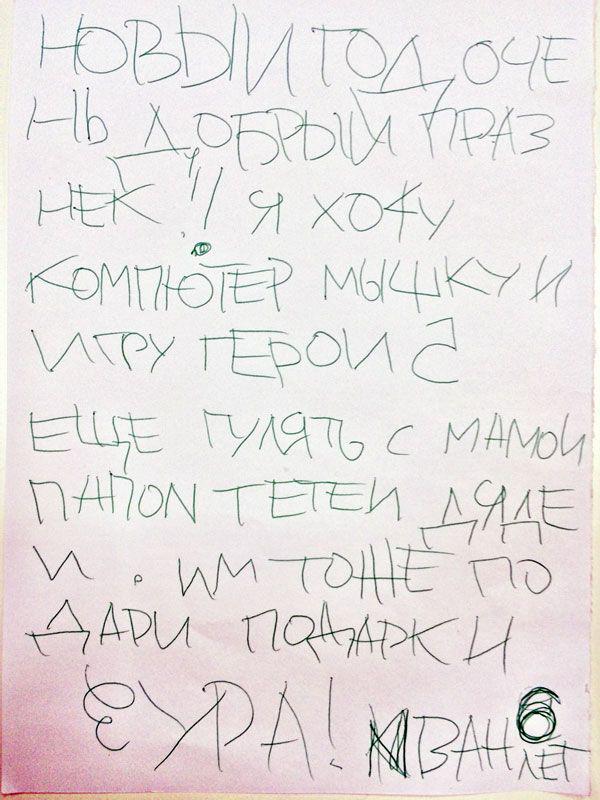 НОВЫЙ ГОД ОЧЕ
НЬ ДОБРЫЙ ПРАЗ
НЕК !! Я ХОЧУ
КОМПЮТЕР МЫШКУ И
ИГРУ ГЕРОИ 5
ЕЩЕ ГУЛЯТЬ С МАМОИ
ПАПОЙ ТЕТЕИ ДЯДЕ
И . ИМ ТОЖЕ ПО
ДАРИ ПОДАРКИ
УРА! ИВАН 6
ЛЕТ